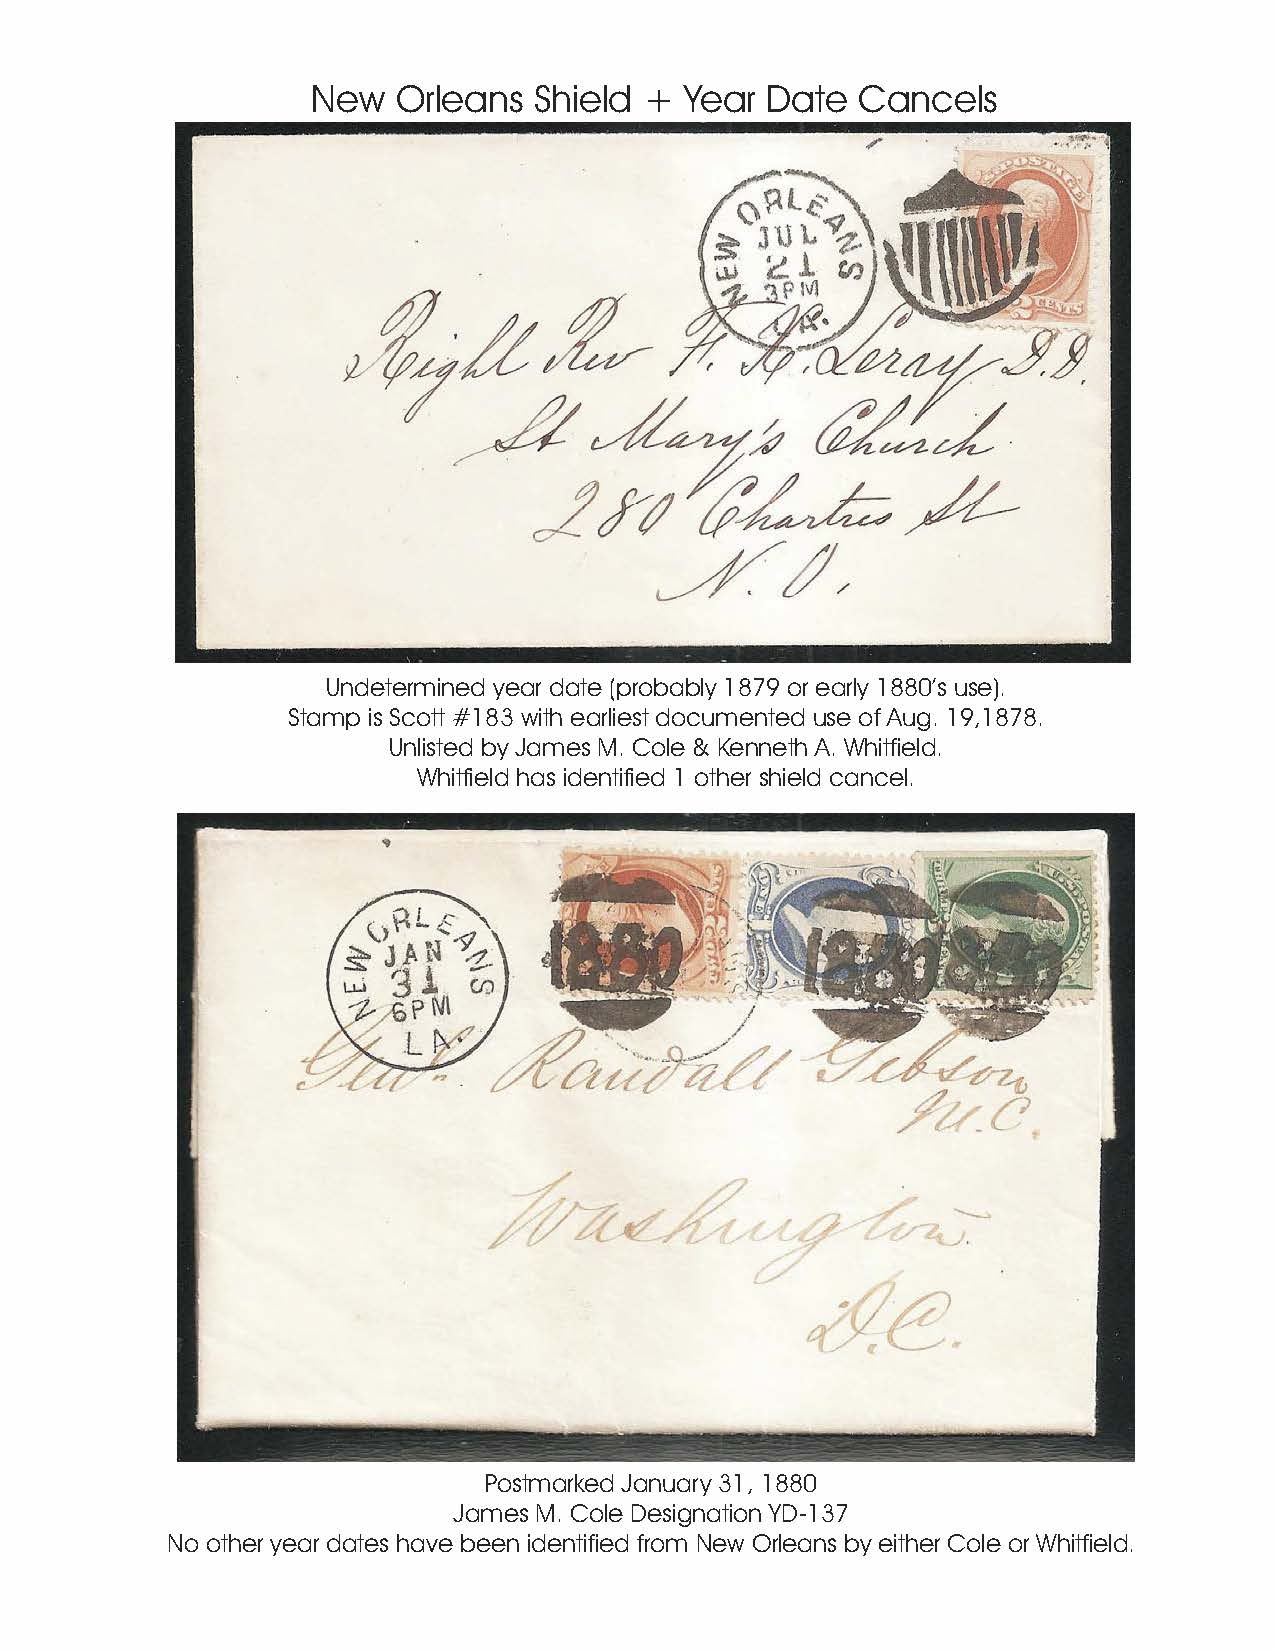 New Orleans Shield + Year Date Cancels
POSTAGE
NEW ORLEANS
JUL
21
3PM
LA.
2 CENTS
Right Rev F. X. Leray D.D.
St Mary's Church
280 Chartres St
N.O.
Undetermined year date (probably 1879 or early 1880's use).
Stamp is Scott #183 with earliest documented use of Aug. 19,1878.
Unlisted by James M. Cole & Kenneth A. Whitfield.
Whitfield has identified 1 other shield cancel.
NEW ORLEANS
JAN
31
6PM
LA.
1880
1880
1880
Genl. Randall Gibson
M.C.
Washington
D.C.
Postmarked January 31, 1880
James M. Cole Designation YD-137
No other year dates have been identified from New Orleans by either Cole or Whitfield.